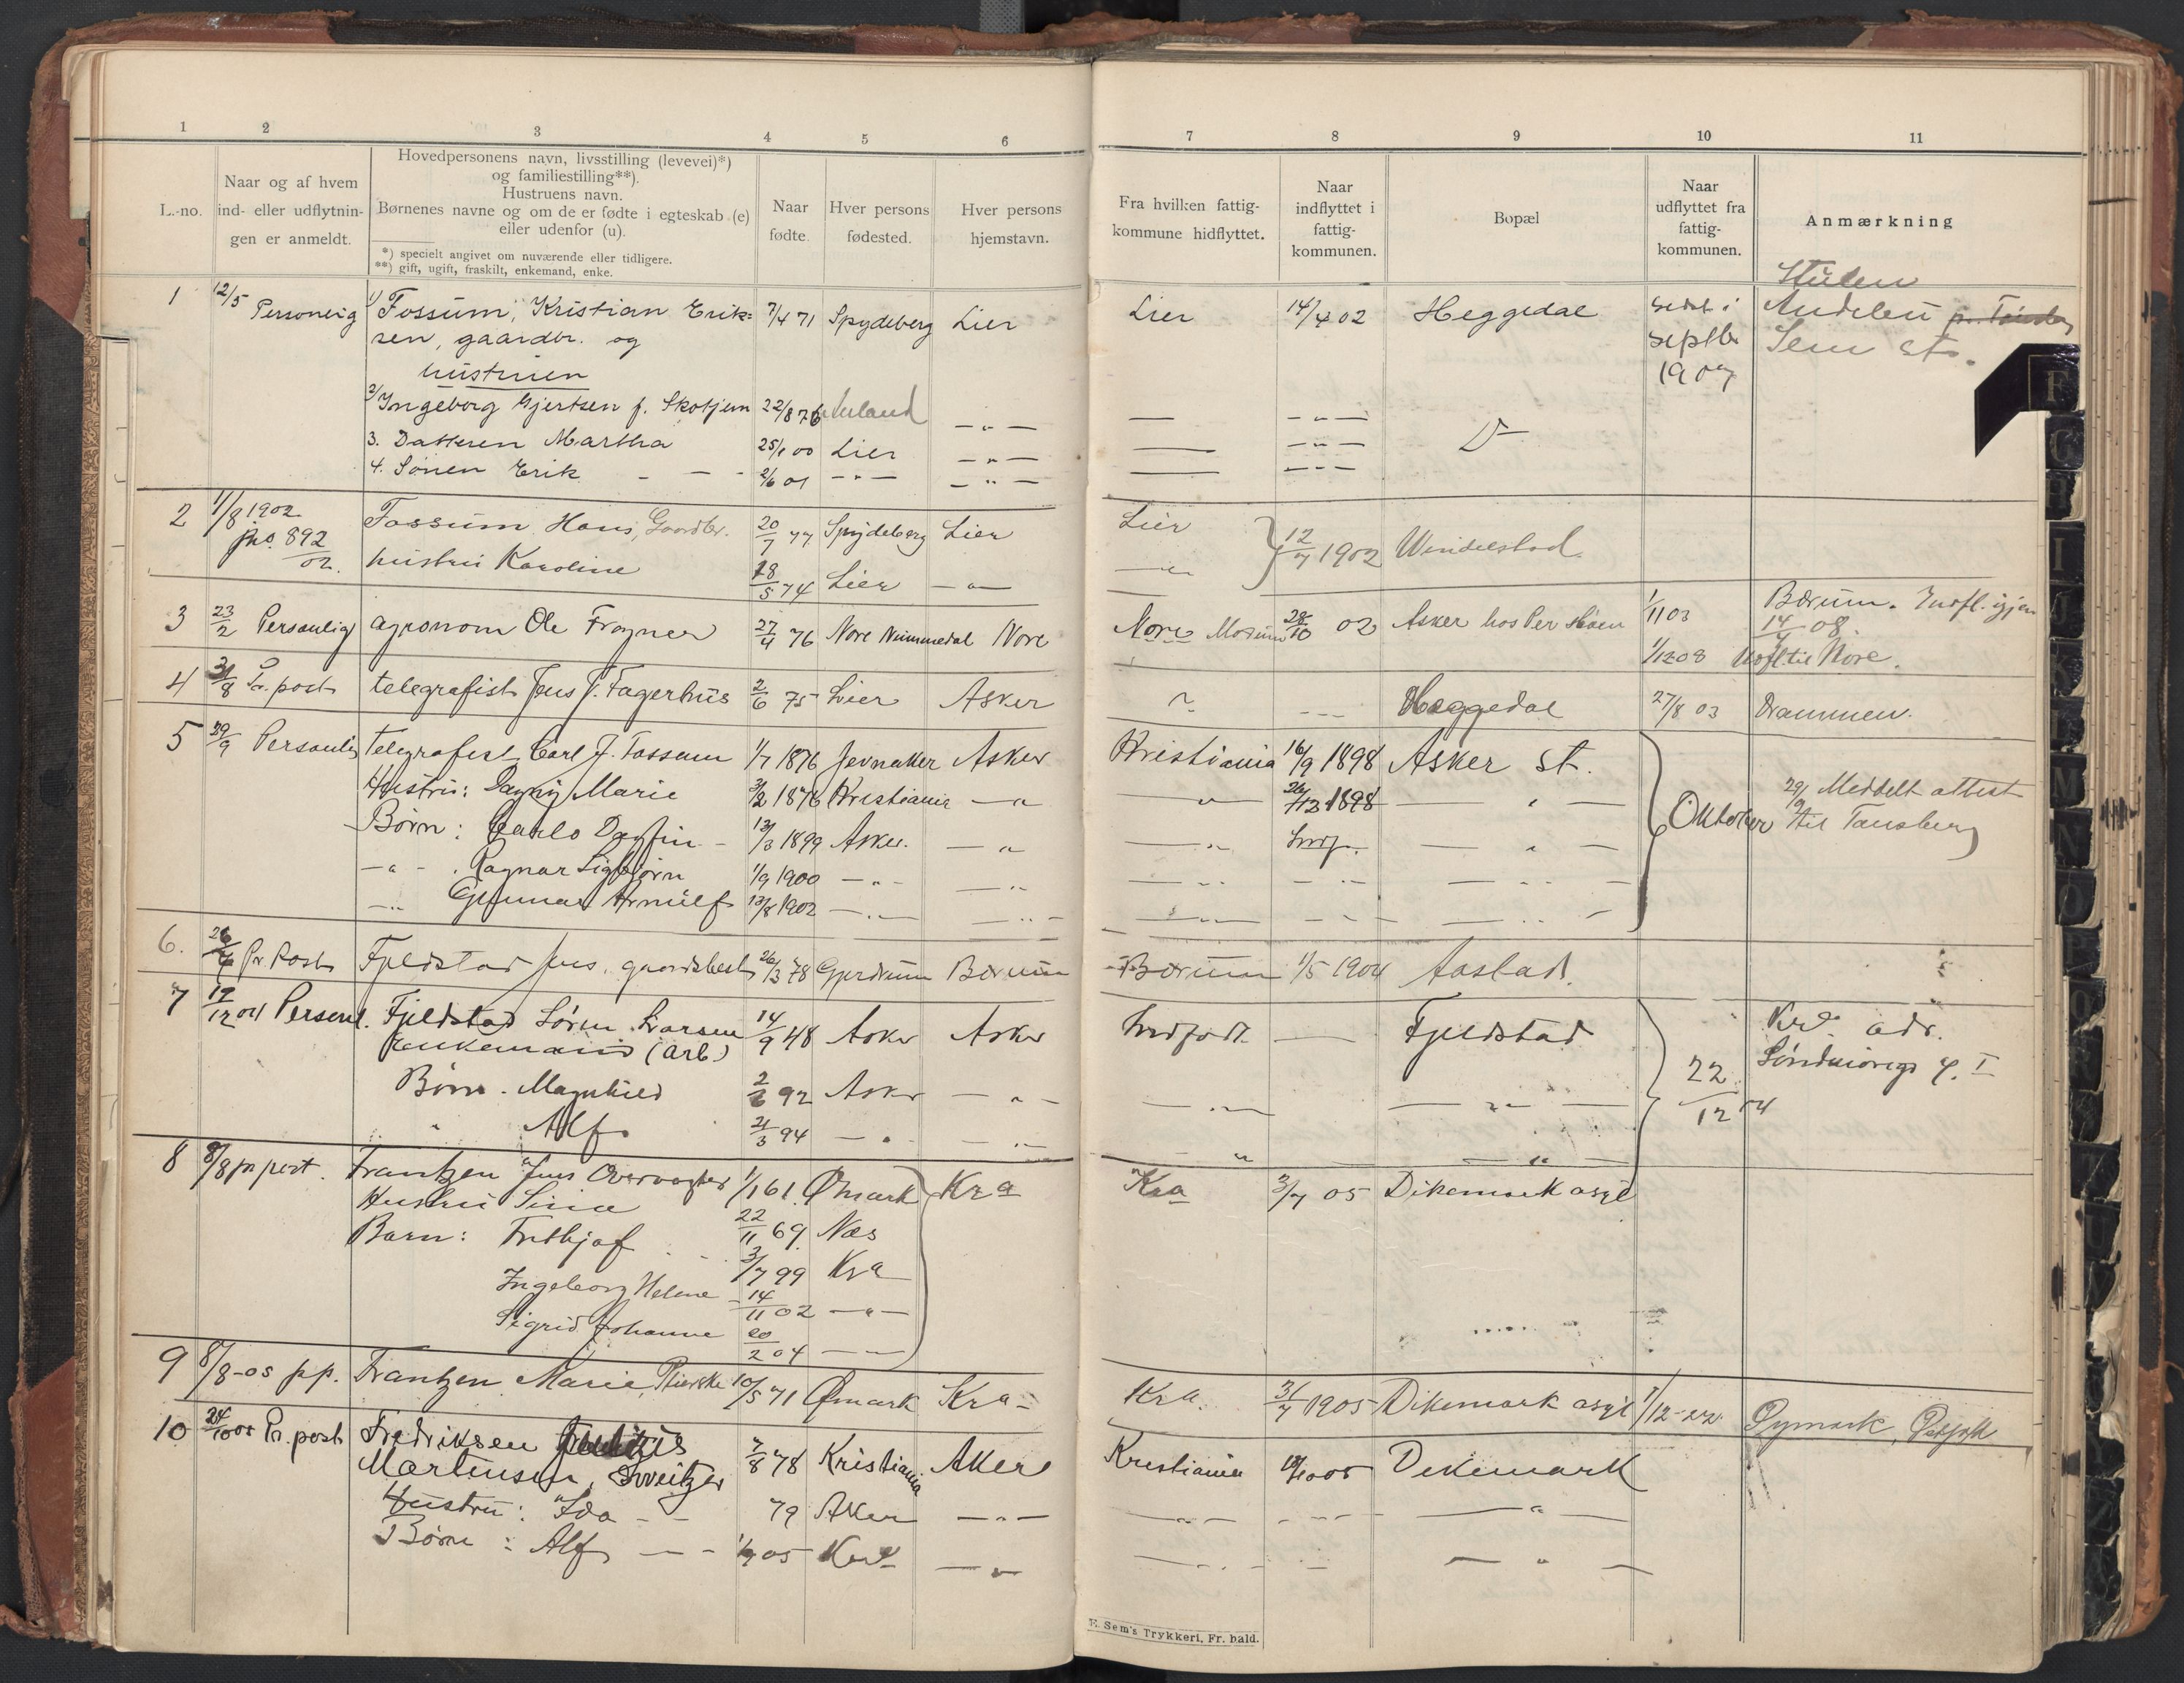 1 2 3 4 5 6
L.-no.
Naar og af hvem
ind- eller udflytnin-
gen er anmeldt.
Hovedpersonens navn, livsstilling (levevei)*)
og familiestilling**).
Hustruens navn.
Børnenes navne og om de er fødte i egteskab (e)
eller udenfor (u).
*) specielt angivet om nuværende eller tidligere.
**) gift, ugift, fraskilt, enkemand, enke.
Naar
fødte.
Hver persons
fødested.
Hver persons
hjemstavn.
1 12/5 Personlig 1/ Fossum, Kristian Erik= 7/4 71 Spydeberg Lier
sen, gaardbr. og
hustruen
2/ Ingeborg Gjertsen f. Skotjern 22/8 76 -"-
3. Datteren Martha 25/1 00 Lier -"-
4. Sønen Erik - - - 2/6 01 -"- -"-
2 11/8 1902 Fossum Hans, Gaardbr. 20/7 77 Spydeberg Lier
jno. 892/02. hustru Karoline 18/5 74 Lier -"-
3 23/2 Personlig agronom Ole Fragner 27/4 76 Nore Nummedal Nore
4 31/8 Pr. post telegrafist Jens J. Fagerhus 2/6 75 Lier Asker
5 29/9 Personlig Telegrafist Carl J. Fossum 1/7 1876 Jevnaker Asker
Hustru: Dagny Marie 3/2 1876 Kristiania -"
Børn: Carlo Dagfin - 13/3 1899 Asker. -"
-"- . Ragnar Sigbjørn 1/9 1900 -"- -"-
-"- Gunnar Arnulf 13/8 1902 -"- -"-
6. 26/4 Pr. Post Fjeldstad Jens, gaardsbest 26/3 78 Gjerdrum Bærum
7 19/12 04 Personl. Fjeldstad Søren Larsen 14/9 48 Asker Asker
Enkemand (arb.)
Børn. Magnhild 2/6 92 Asker -"-
" Alf 21/3 94 -"- -"-
8 8/8 pr post. Frantzen Jens Overvogter 1/1 61. Ømark Kra
Hustru Sina 22/11 69 Næs
Barn: Frithjof 3/7 99 Kra
Ingeborg Helene 14/11 02 -"-
Sigrid Johanne 20/2 04 -"-
9 8/8-05 pp. Frantzen Marie, 10/5 71 Ømark Kra-
10 24/10 05 Pr. post Fredriksen 7/8 78 Kristiania Akers
Martinsen, Sveitzer
Hustru: Ida - - 79 Aker -"-
Børn: Alf - - 1/9 05 Kra -"
7 8 9 10 11
Fra hvilken fattig-
kommune hidflyttet.
Naar
indflyttet i
fattig-
kommunen.
Bopæl
Naar
udflyttet fra
fattig-
kommunen.
Anmærkning
Lier 14/4 02 Heggedal sidst i
septbr
1907
Andebu
Sem st.
- -"- D-
- -"-
- -"-
Lier
-"- 12/7 1902 Vindelstad
Nore Modum 28/10 02 Asker hos Per Høen 1/11 03 Bærum. Indfl. igjen
14/4 08.
1/12 08 Udfl til Nore.
? --- Heggedal 27/8 03 Drammen.
Kristiania 16/9 1898 Asker st.
-"- 26/12 1898 - " - Oktober 29/9 Meddelt attest
til Tønsberg
-"- Indf. - " -
-"- -"- -"-
-"- -"- -"-
Bærum 1/5 1904 Aastad.
Indfødt. - Fjeldstad Kra. adr.
-"- -"- 22/12 04
" -"-
Kra 3/7 05 Dikemark asyl
Kra. 31/7 1905 Dikemark asyl 1/12-22 Østfold
Kristiania 05 Dikemark
-"- --- -"-
-"- - -"-
E. Sem's Trykkeri, Fr. hald.
F
G
I
J
M
N
O